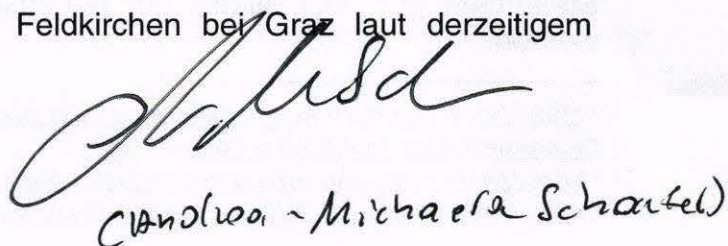 Feldkirchen bei Graz laut derzeitigem
(Andrea - Michaela Schartel)